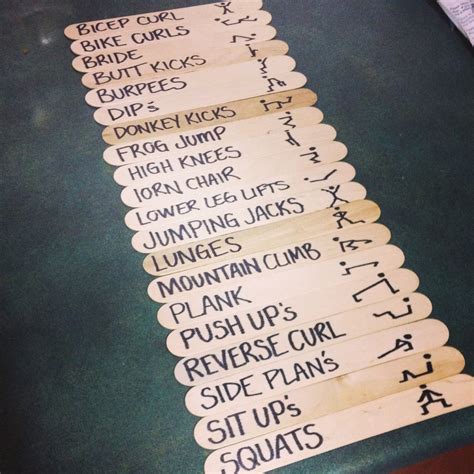 BICEP CURL
BIKE CURLS
BRIDE
BUTT KICKS
BURPEES
DIP's
DONKEY KICKS
FROG JUMP
HIGH KNEES
IORN CHAIR
LOWER LEG LIFTS
JUMPING JACKS
LUNGES
MOUNTAIN CLIMB
PLANK
PUSH UP's
REVERSE CURL
SIDE PLAN's
SIT UP's
SQUATS